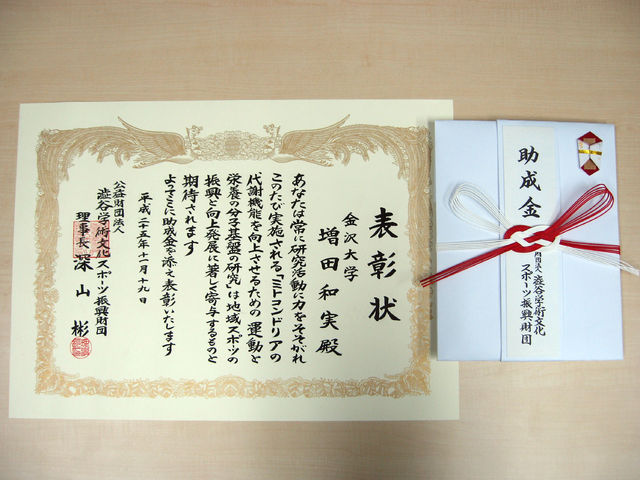 表彰状
金沢大学
増田和実殿
あなたは常に研究活動に力をそそがれ
このたび実施される「ミトコンドリアの
代謝機能を向上させるための 運動と
栄養の分子基盤の研究」は地域スポーツの
振興と向上発展に著しく寄与するものと
期待されます
よってここに助成金を添え表彰いたします
平成二十五年十一月十九日
公益財団法人
澁谷学術文化スポーツ振興財団
理事長 深山 彬
助成金
財団法人 澁谷学術文化
スポーツ振興財団